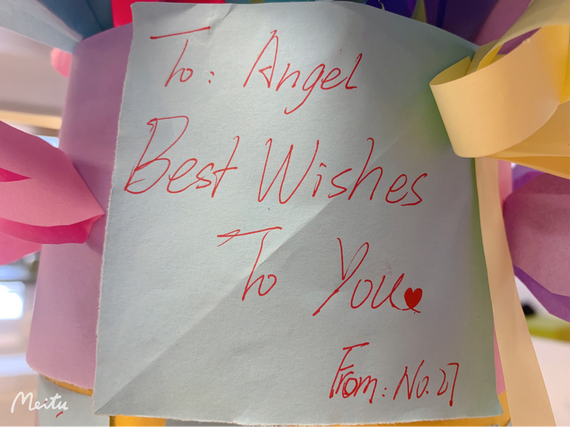 To: Angel
Best Wishes
To You
From: No.27
Meitu